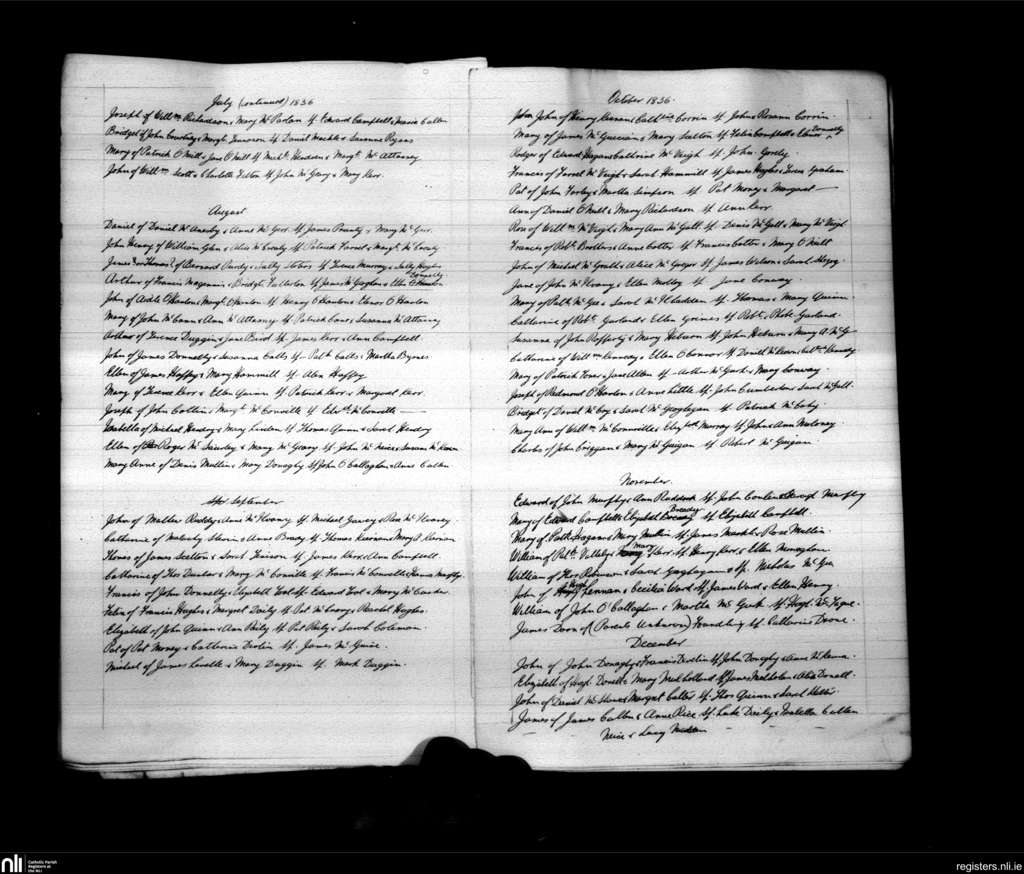 July (continued) 1836
Joseph of Willm Richardson & Mary McParlan Sp Edward Campbell & Marie Cullen
Bridget of John Courtney & Margt Sp Daniel Mackle & Susanna Byrne
Mary of Patrick O'Neill & Jane O'Neill Sp Michl & Margt McAttarsey
John of Willm Scott & Charlotte Sp John McGeary & Mary Kerr
August
Daniel of Daniel & Anne McGeer Sp James Prunty & Mary McGeer
John Henry of William Glen & Alice McCrealy Sp Patrick Farrel & Margt McCrealy
James (or Thomas) of Bernard Purdy & Sally Sp Terence Murray & Sally Hughes
Connelly
Arthur of Francis Magennis & Bridgt Fullerton Sp James McGaghin & Ellen O'Hanlon
John of Ardle O'Hanlon & Margt O'Hanlon Sp Henry O'Hanlon & Elenor O'Hanlon
Mary of John McCann & Ann McAttarsey Sp Patrick Cane & Susanna McAttarsey
Arthur of Terence Duggin & Jane Bird Sp James Kerr & Ann Campbell
John of James Donnelly & Susanna Calls Sp Patk Calls & Martha Byrnes
Ellen of James Haffey & Mary Hammill Sp Alen Haffey
Mary of Terence Kerr & Ellen Quinn Sp Patrick Kerr & Margaret Kerr
Joseph of John Collins & Margt McConville Sp Edwd McConville —
Isabella of Michael Hendry & Mary Linden Sp Thomas Quinn & Sarah Hendry
Ellen of Roger McSwiorley & Mary McGeary Sp John McNeice & Susan McKeever
Mary Anne of Denis Mullin & Mary Donaghy Sp John O'Callaghan & Anne Cullen
September
John of Mathew Ruddy & Anne McIlvaney Sp Michael Garvey & Rose McIlvaney
Catherine of Malachy & Anne Brady Sp Thomas Keernan & Mary A. Kernan
Thomas of James Skelton & Sarah Sp James Kerr & Ann Campbell
Catharine of Thos Dunbar & Mary McConville Sp Francis McConville & Hanna Murphy
Francis of John Donnelly & Elizabeth Fool Sp Edward Fool & Mary McCusker
Felix of Francis Hughes & Margaret Daily Sp Pat McCrory & Rachel Hughes
Elizabeth of John Quinn & Ann Reily Sp Pat Reily & Sarah Coleman
Pat of Pat Money & Catherine Devlin Sp James McGuire
Michael of James Lavelle & Mary Duggin Sp Mark Duggin
October 1836.
John of Henry & Cathrine Corrin Sp John & Rosann Corrin
Donnelly
Mary of James McGuerrin & Mary Skelton Sp Felix Campbell & Elenor
Rodger of Edward Hagan & Catherine McVeigh Sp John Gordy
Francis of Farrel McVeigh & Sarah Hammill Sp James Hughes & Teresa
Pat of John Farley & Martha Simpson Sp Pat Money & Margaret —
Ann of Daniel O'Neill & Mary Richardson Sp Ann Kerr
Rose of Willm McVeigh & Mary Ann McGall Sp Denis McGall & Mary McVeigh
Francis of Robt Brothers & Anne Cotter Sp Francis Cotter & Mary O'Neill
John of Michael McGrath & Alice McGregor Sp James Wilson & Sarah
Jane of John McIlvany & Ellen Molloy Sp Jane Conway
Mary of Patk McGee & Sarah McFladden Sp Thomas & Mary Quinn
Catherine of Robt Garland & Ellen Grimes Sp Robt & Phebe Garland
Susanna of John Rafferty & Mary Hebron Sp John Hebron & Mary A. McG
Catherine of Willm Kennedy & Ellen O'Connor Sp Daniel McKeever & Cathr Kennedy
Mary of Patrick Toner & Jane Allen Sp Arthur McGurk & Mary Conway
Joseph of Redmond O'Hanlon & Anne Little Sp John Cumberton & Sarah McGall
Bridget of David McCoy & Sarah McGeoghegan Sp Patrick McCahy
Mary Ann of Willm McConville & Elizth Murray Sp John & Ann Maloney
Charles of John Criggan & Mary McGuigan Sp Robert McGuigan
November
Edward of John Murphy & Ann Raddock Sp John Conlon & Murphy
Breaday
Mary of Edward Campbell & Elizabeth Sp Elizabeth Campbell
Mary of Patk Hagan & Mary Mullin Sp James Mackle & Rose Mullin
Mary
William of Patk Vallely & Kerr Sp Henry Kerr & Ellen Monaghan
William of Thos Robinson & Sarah Gaghagan Sp Nicholas McGee
Hugh
John of Lennan & Cecilia Ward Sp James Ward & Ellen Henry
William of John O'Callaghan & Martha McGurk Sp Hugh McTague
James Doon of (Parents Unknown) Foundling Sp Catherine Doone
December
John of John Donaghy & Francis Devlin Sp John Donaghy & Anne McKenna
Elizabeth of Hugh Donell & Mary Mulholland Sp James & Alice Donell
John of Daniel McShane & Margaret Calter Sp Thos Quinn & Sarah
James of James Cullen & Anne Rice Sp Luke Daily & Isabella Cullen
Neice & Lucy
nli
Catholic Parish
Registers at
the NLI
registers.nli.ie